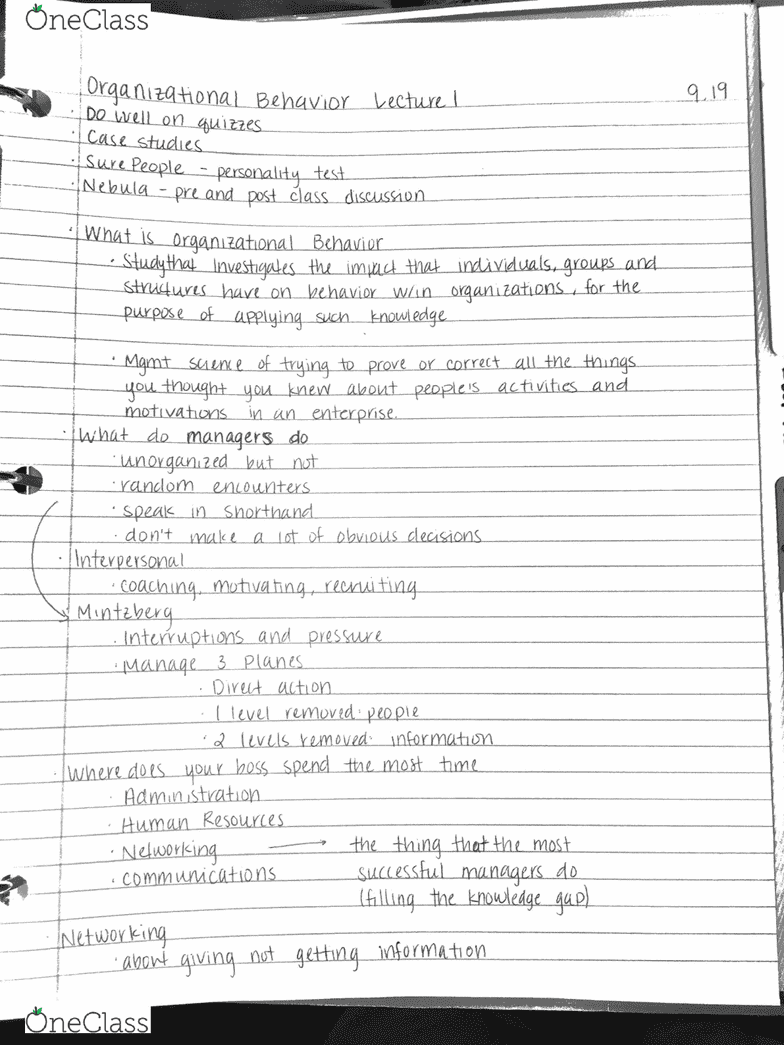 OneClass
Organizational Behavior Lecture 1 9.19
· Do well on quizzes
· Case studies
· SurePeople - personality test
· Nebula - pre and post class discussion
· What is Organizational Behavior
· Study that investigates the impact that individuals, groups and
structures have on behavior w/in organizations, for the
purpose of applying such knowledge
· Mgmt science of trying to prove or correct all the things
you thought you knew about people's activities and
motivations in an enterprise.
· What do managers do
· unorganized but not
· random encounters
· speak in shorthand
· don't make a lot of obvious decisions
· Interpersonal
· coaching, motivating, recruiting
Mintzberg
· Interruptions and pressure
· Manage 3 Planes
· Direct action
· 1 level removed: people
· 2 levels removed: information
· Where does your boss spend the most time
· Administration
· Human Resources
· Networking → the thing that the most
· communications successful managers do
(filling the knowledge gap)
· Networking
· about giving not getting information
OneClass